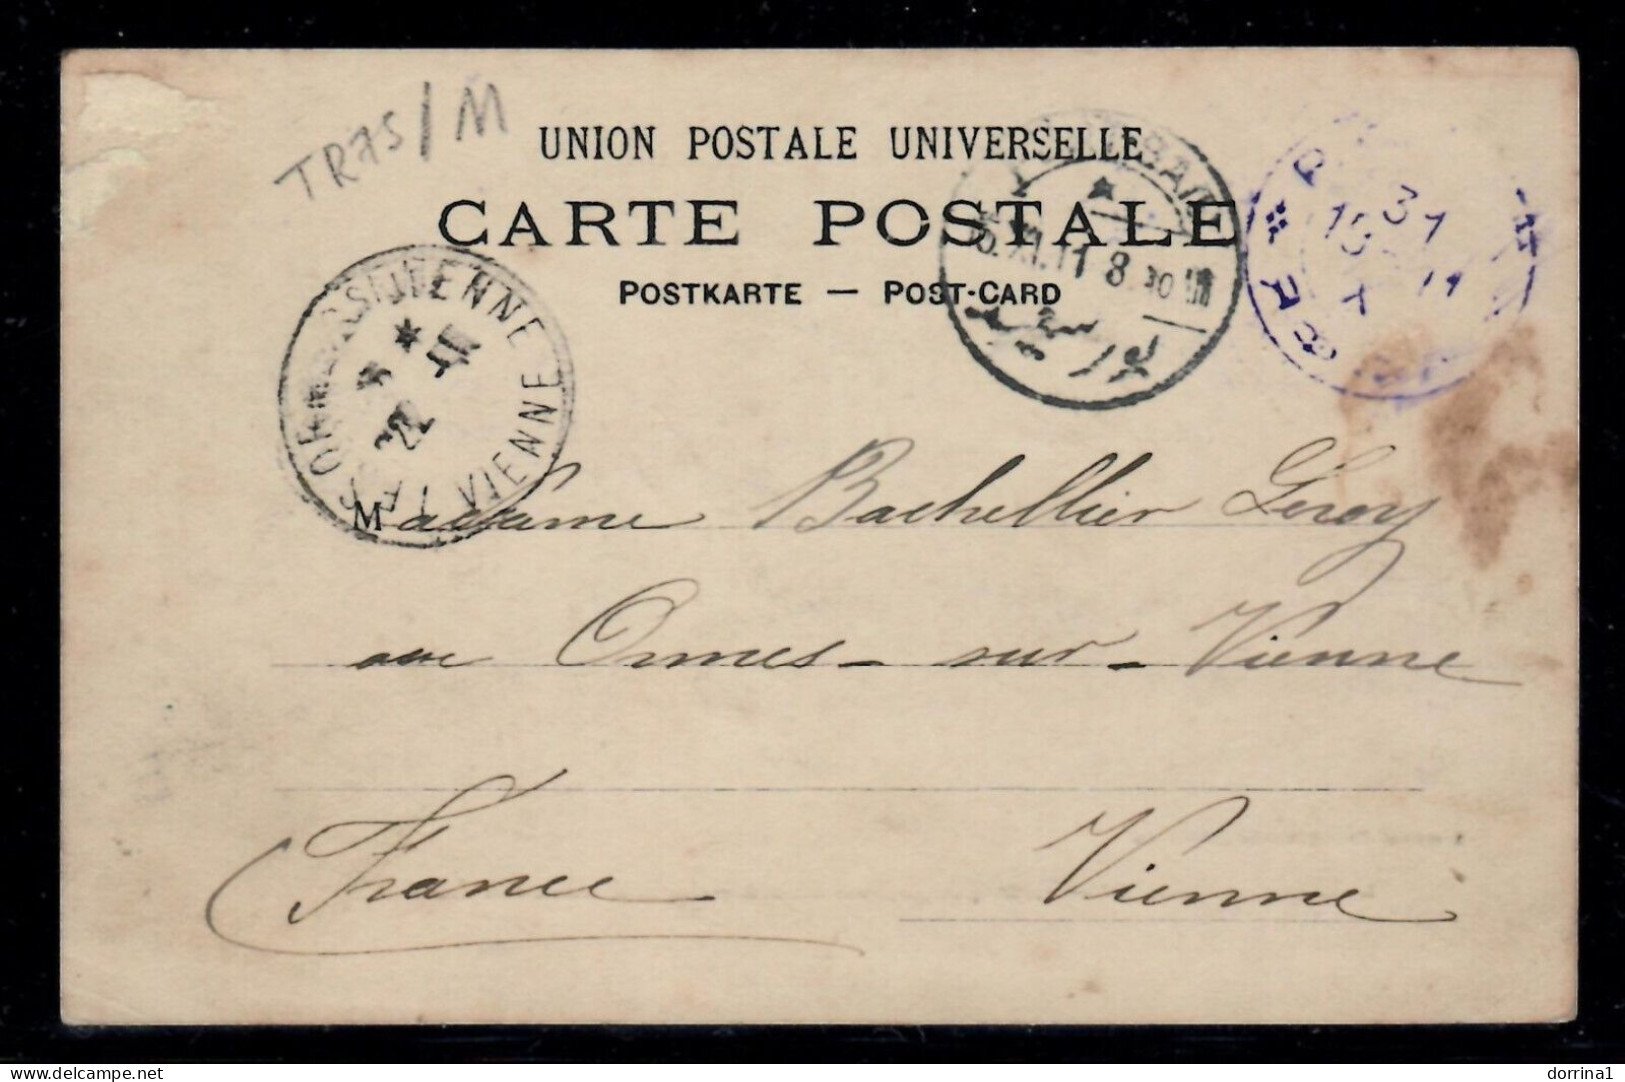 TR75/M
UNION POSTALE UNIVERSELLE
CARTE POSTALE
POSTKARTE — POST-CARD
VIENNE
31
Madame Bachellier Leroy
Ormes-sur-Vienne
France
Vienne
https://www.delcampe.net
dorrina1